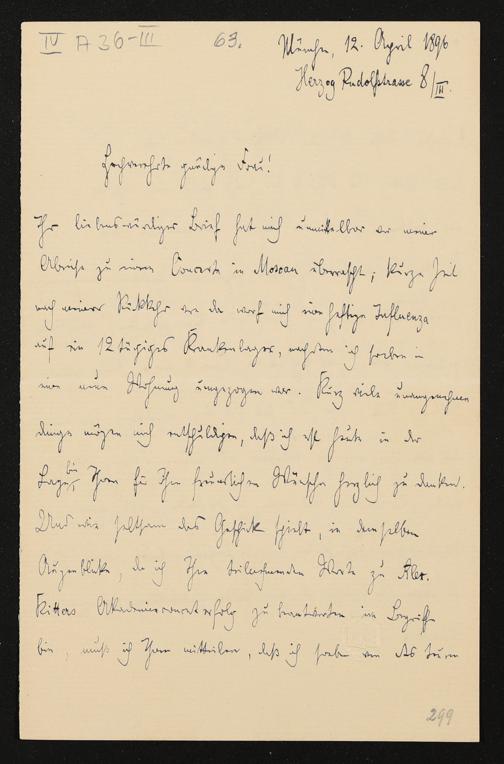 IV A 36-III 63.
München, 12. April 1896
Herzog Rudolfstrasse 8/III.
Hochverehrte gnädige Frau!
Ihr liebenswürdiger Brief hat mich unmittelbar vor meiner
Abreise zu einem Concerte in Moscau überrascht; kurze Zeit
nach meiner Rückkehr von da warf mich eine heftige Influenza
auf ein 12 tägiges Krankenlager, nachdem ich soeben in
eine neue Wohnung umgezogen war. Kurz viele unangenehme
dinge mögen mich entschuldigen, daß ich erst heute in der
Lage bin, Ihnen für Ihre freundlichen Wünsche herzlich zu danken.
Und wie seltsam das Geschick spielt, in demselben
Augenblicke, da ich Ihre teilnehmenden Worte zu Alex.
Ritters Akademieconcerterfolg zu beantworten im Begriffe
bin, muß ich Ihnen mitteilen, daß ich soeben von
299